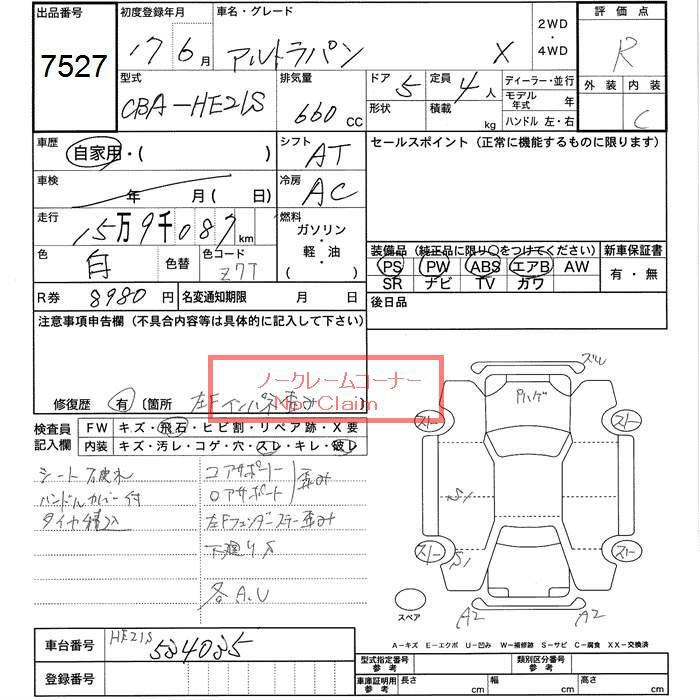 出品番号
7527
初度登録年月
17 6月
車名・グレード
アルトラパン X
2WD
・
4WD
評価点
R
外装 内装
C
型式
CBA-HE21S
排気量
660 CC
ドア 5
形状
定員 4人
積載 kg
ディーラー・並行
モデル年式 年
ハンドル 左・右
車歴
自家用・( )
シフト
AT
セールスポイント (正常に機能するものに限ります)
車検
年 月(日)
冷房
AC
走行
15万9千087 km
燃料
ガソリン
・
軽・油
( )
色
白
色替
色コード
Z7T
装備品 (純正品に限り○をつけてください)
新車保証書
PS PW ABS エアB AW
SR ナビ TV カワ
有・無
R券 8980円
名変通知期限 月 日
後日品
注意事項申告欄 (不具合内容等は具体的に記入して下さい)
ノークレームコーナー
No Claim
修復歴 有 〔箇所 左Fインパネ歪み
検査員
記入欄
FW キズ・飛石・ヒビ割・リペア跡・X要
内装 キズ・汚レ・コゲ・穴・スレ・キレ・破レ
シート破れ
ハンドルカバー付
タイヤ積込
コアサポート
ロアサポート
歪み
左Fフェンダーステー歪み
下廻りS
各A.U
ズレ
Pハゲ
スト
スト
S1
スト
S1
スト
スペア
A2
A2
A-キズ E-エクボ U-凹み W-補修跡 S-サビ C-腐食 XX-交換済
車台番号
HE21S
584085
登録番号
型式指定番号
参考
類別区分番号
参考
車庫証明用
参考
長さ cm
幅 cm
高さ cm